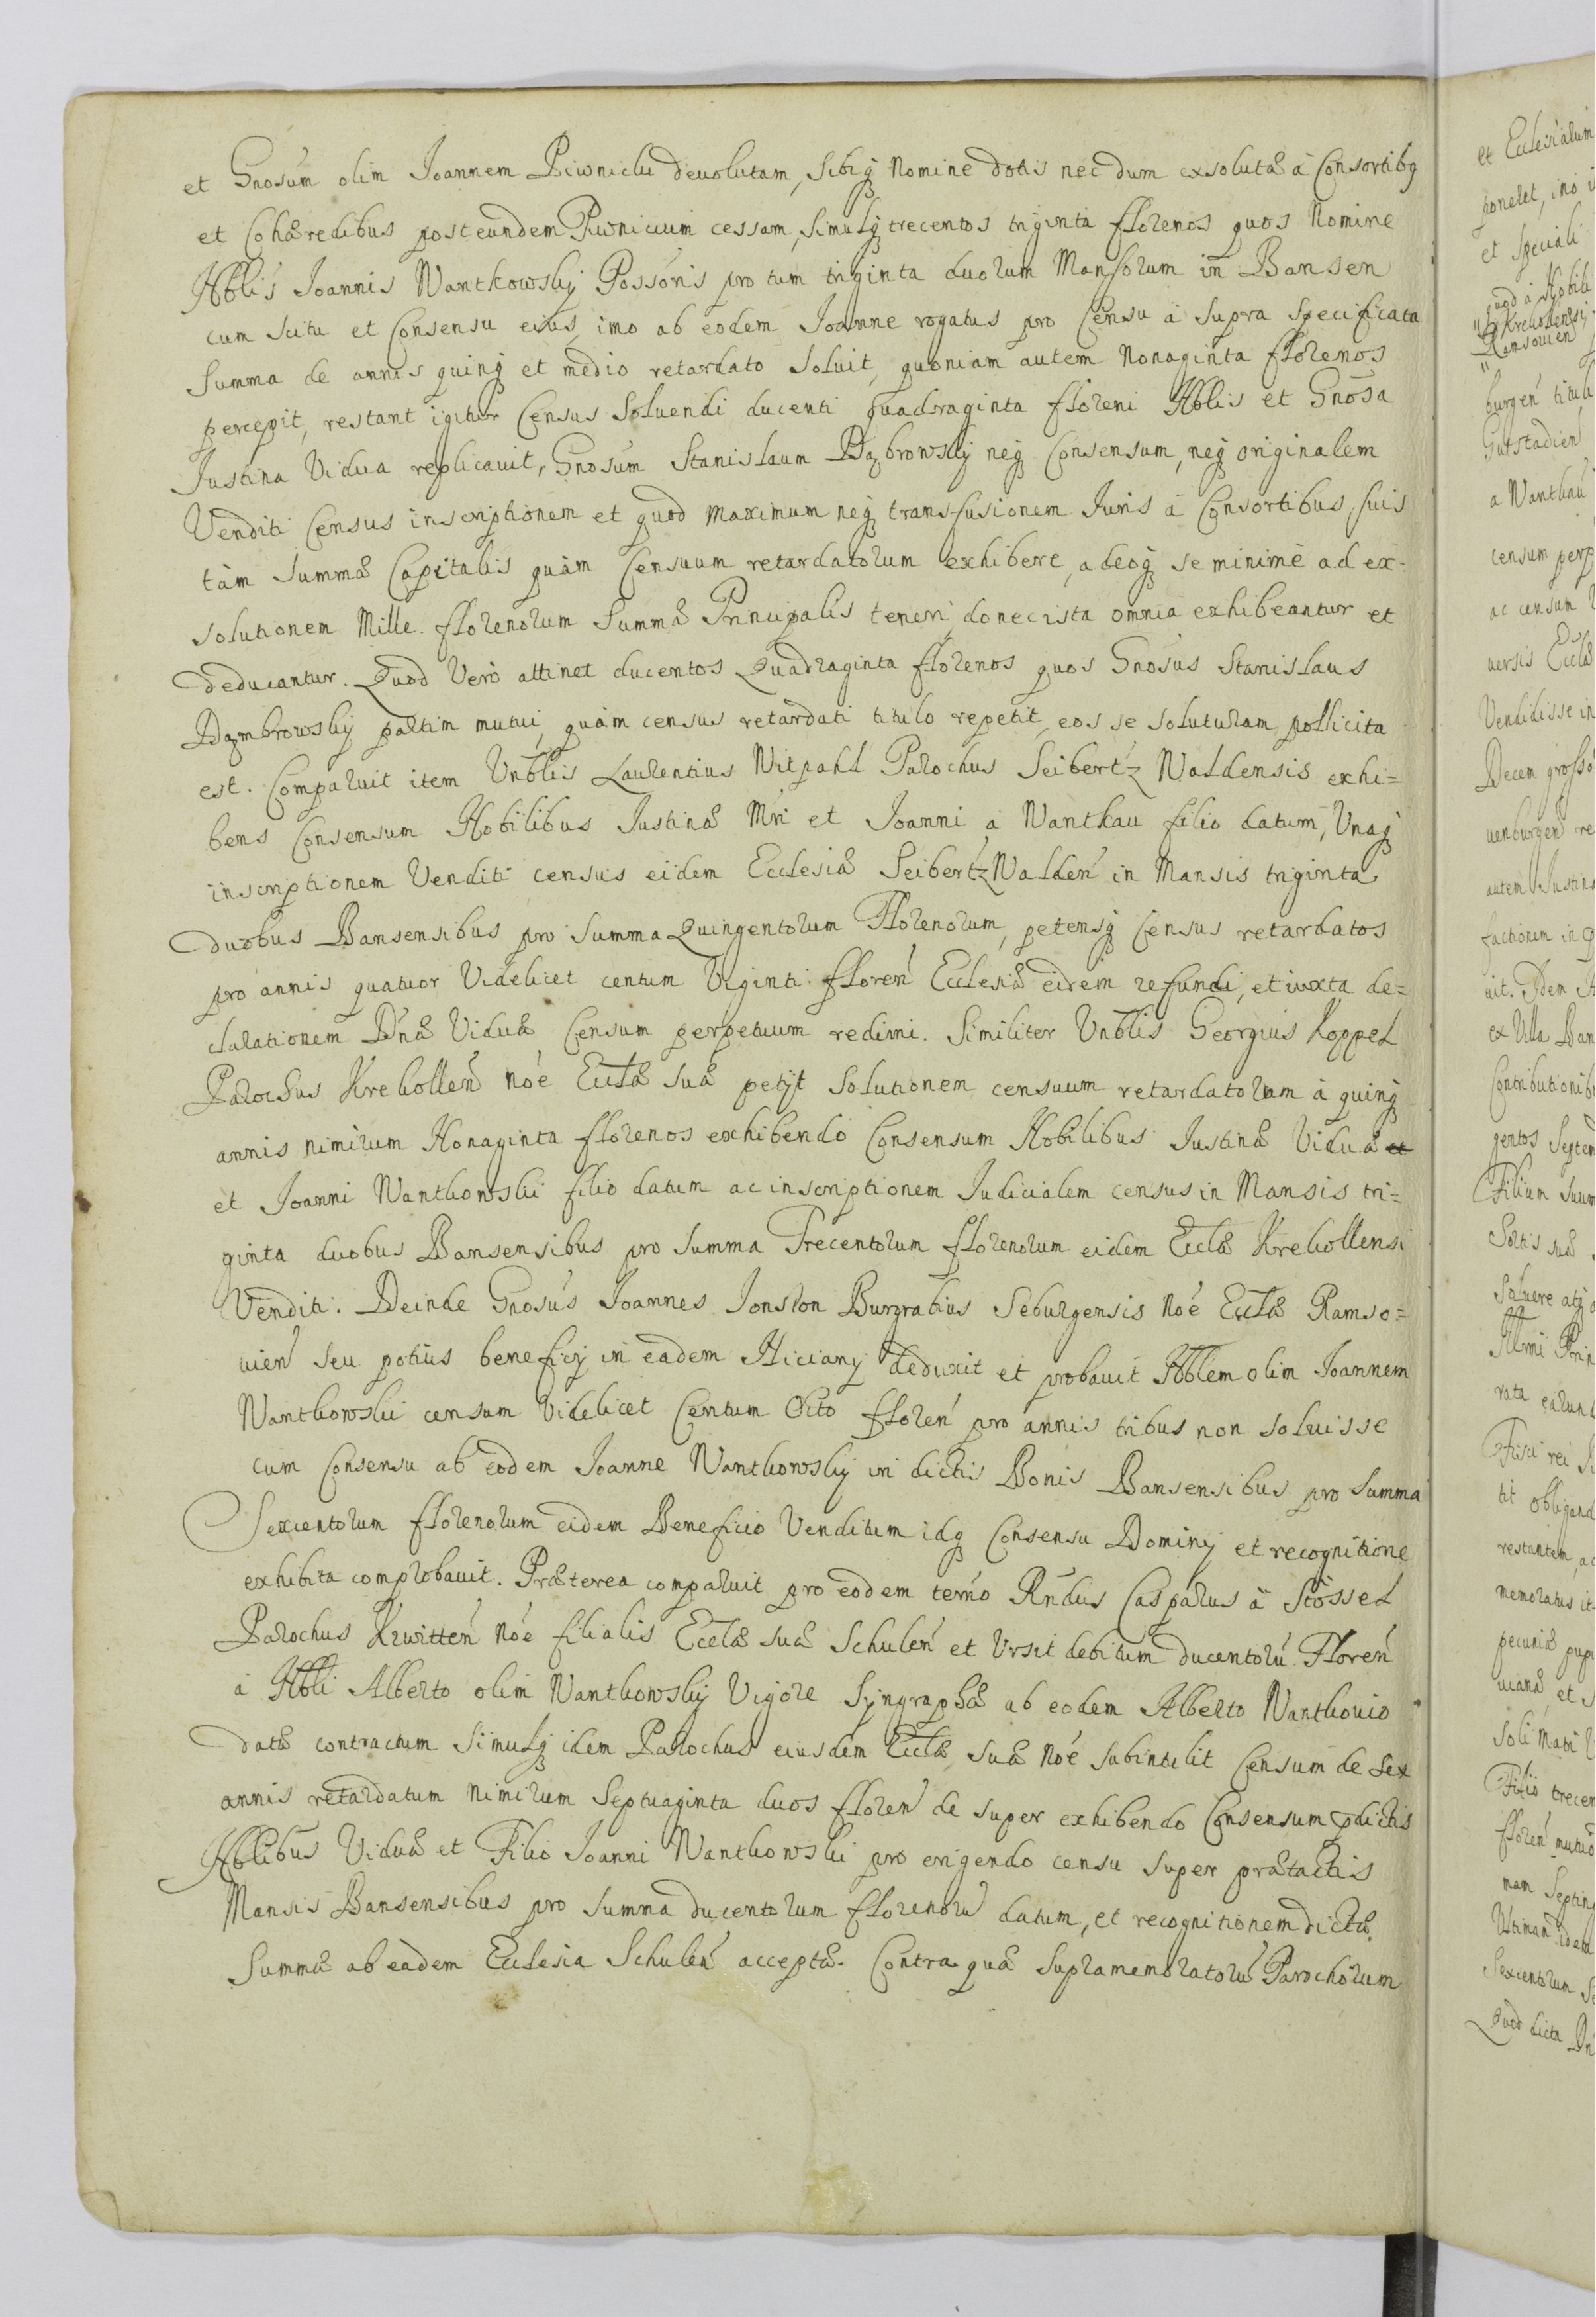 et Gnosum olim Joannem Piwnicki deuolutam, sibiq nomine dotis nec dum exsolutæ à Consortibq
et Cohæredibus post eundem Piwnicium cessam, simulq trecentos triginta florenos quos Nomine
Nblis Joannis Wantkowskij Possoris pro tum triginta duorum Mansorum in Bansen
cum scitu et Consensu eius, imo ab eodem Joanne rogatus pro Censu à supra specificata
summa de annis quinq et medio retardato soluit, quoniam autem Nonaginta florenos
percepit, restant igitur Census soluendi ducenti quadraginta floreni Nblis et Gnosa
Justina Vidua replicauit, Gnosum Stanislaum Dąbrowskij neq Consensum, neq originalem
Venditi Census inscriptionem et quod maximum neq transfusionem Juris à Consortibus suis
tàm summæ Capitalis quàm Censuum retardatorum exhibere, adeoq se minimè ad ex=
solutionem Mille florenorum summæ Principalis teneri, donec ista omnia exhibeantur et
deducantur. Quod Verò attinet ducentos Quadraginta florenos quos Gnosus Stanislaus
Dąmbrowskij partim mutui, quàm census retardati titulo repetit, eos se soluturam pollicita
est. Comparuit item Vnblis Laurentius Witpahl Parochus Seibertz Waldensis exhi=
bens Consensum Nobilibus Justinæ Mri et Joanni à Wantkau filio datum, Vnaq
inscriptionem Venditi census eidem Ecclesiæ SeibertzWalden in Mansis triginta
duobus Bansensibus pro summa Quingentorum Florenorum, petensq Census retardatos
pro annis quatuor Videlicet centum Viginti floren Ecclesiæ eidem refundi, et iuxta de=
clarationem Dnæ Viduæ Censum perpetuum redimi. Similiter Vnblis Georgius Koppel
Parochus Krekollen noe Eccłæ suæ petijt solutionem censuum retardatorum à quinq
annis nimirum Nonaginta florenos exhibendo Consensum Nobilibus Justinæ Viduæ et
et Joanni Wantkowski filio datum ac inscriptionem Judicialem census in Mansis tri=
ginta duobus Bansensibus pro summa Trecentorum florenorum eidem Eccłæ Krekollensi
Venditi. Deinde Gnosus Joannes Jonston Burgrabius Seburgensis noe Eccłæ Ramso=
uien seu potius beneficij in eadem Hiccianij deduxit et probauit Nblem olim Joannem
Wantkowski censum Videlicet Centum Octo floren pro annis tribus non soluisse
cum Consensu ab eodem Joanne Wantkowskij in dictis Bonis Bansensibus pro summa
Sexcentorum florenorum eidem Beneficio Venditum idq Consensu Dominij et recognitione
exhibita comprobauit. Præterea comparuit pro eodem terno Rndus Casparus à Stössel
Parochus Krwitten noe filialis Eccłæ suæ Schulen et Vrsit debitum ducentoru Floren
à Nbli Alberto olim Wantkowskij Vigore Syngraphæ ab eodem Alberto Wantkouio
datæ contractum simulq idem Parochus eiusdem Eccłæ suæ noe subintulit Censum de sex
annis retardatum Nimirum Septuaginta duos floren de super exhibendo Consensum pdictis
Nblibus Viduæ et Filio Joanni Wantkowski pro erigendo censu super prætactis
Mansis Bansensibus pro summa ducentorum florenoru datum, et recognitionem dictæ
Summæ ab eadem Ecclesia Schulen acceptæ. Contra quæ supramemoratoru Parochorum